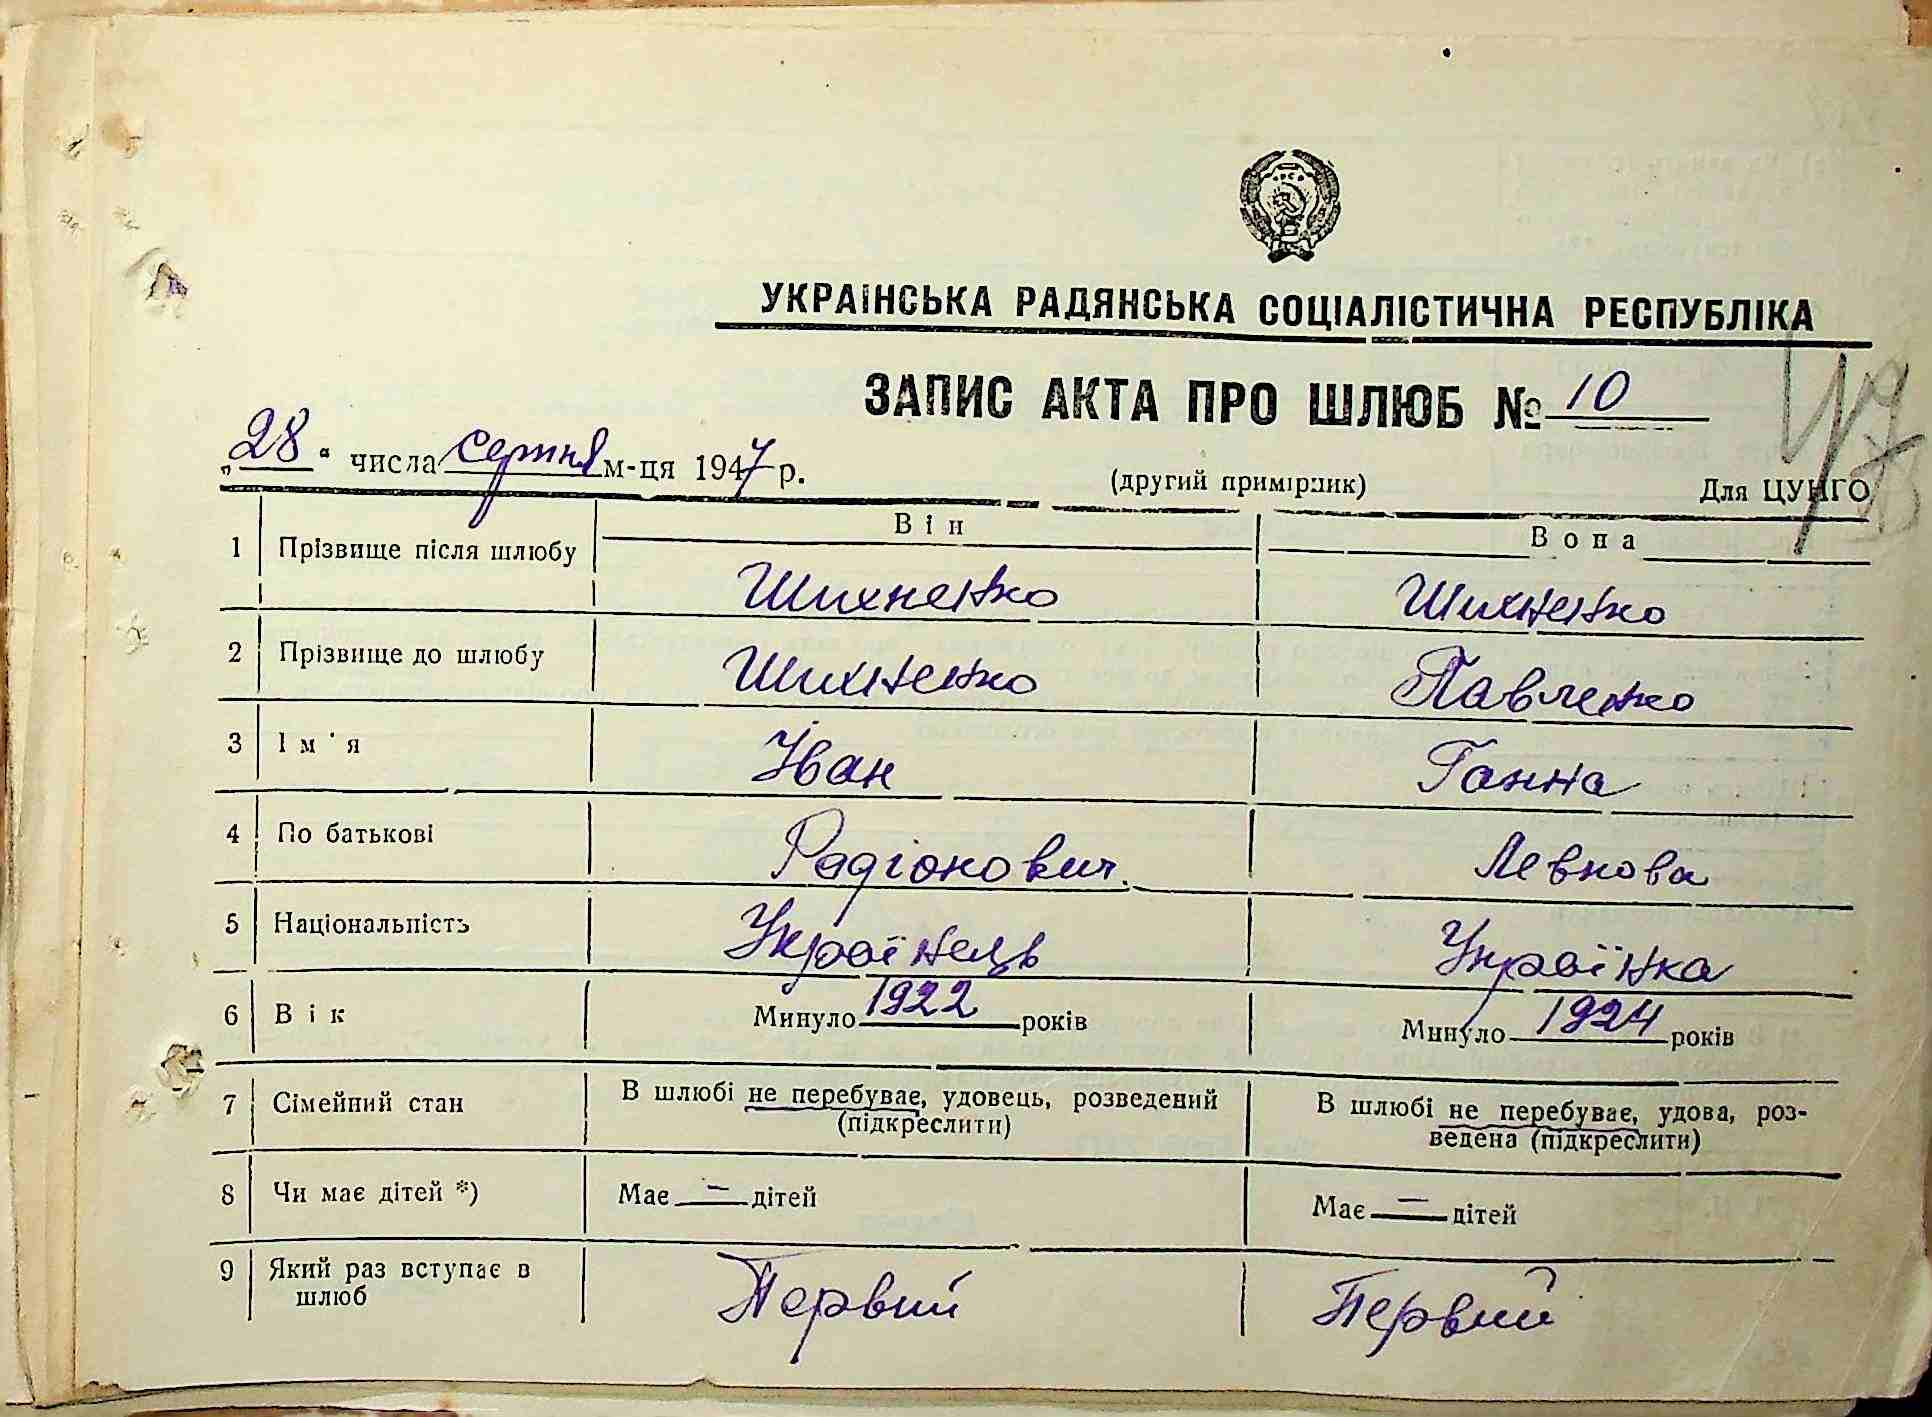 УКРАЇНСЬКА РАДЯНСЬКА СОЦІАЛІСТИЧНА РЕСПУБЛІКА
ЗАПИС АКТА ПРО ШЛЮБ № 10
„28“ числа серпня м-ця 1947 р.
(другий примірник) Для ЦУНГО
Він Вона
1 Прізвище після шлюбу Шихненко Шихненко
2 Прізвище до шлюбу Шихненко Павленко
3 Ім'я Іван Ганна
4 По батькові Радіонович. Левкова
5 Національність Українець Українка
6 Вік Минуло 1922 років Минуло 1924 років
7 Сімейний стан В шлюбі не перебуває, удовець, розведений (підкреслити) В шлюбі не перебуває, удова, роз-
ведена (підкреслити)
8 Чи має дітей *) Має — дітей Має — дітей
9 Який раз вступає в
шлюб Первий Первий